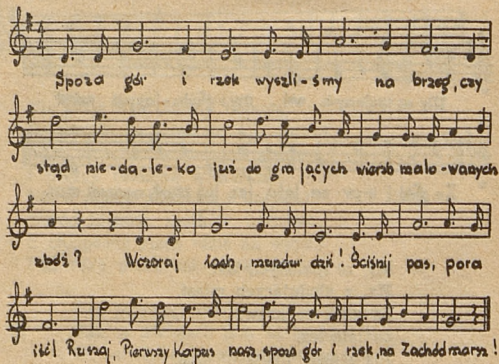 Spoza gór i rzek wyszli-śmy na brzeg, czy
stąd nie-da-le-ko już do grających wierzb malo-wanych
zbóż? Wczoraj łach, mundur dziś! Ściśnij pas, pora
iść! Ruszaj, Pierwszy Korpus nasz, spoza gór i rzek, na Zachód marsz